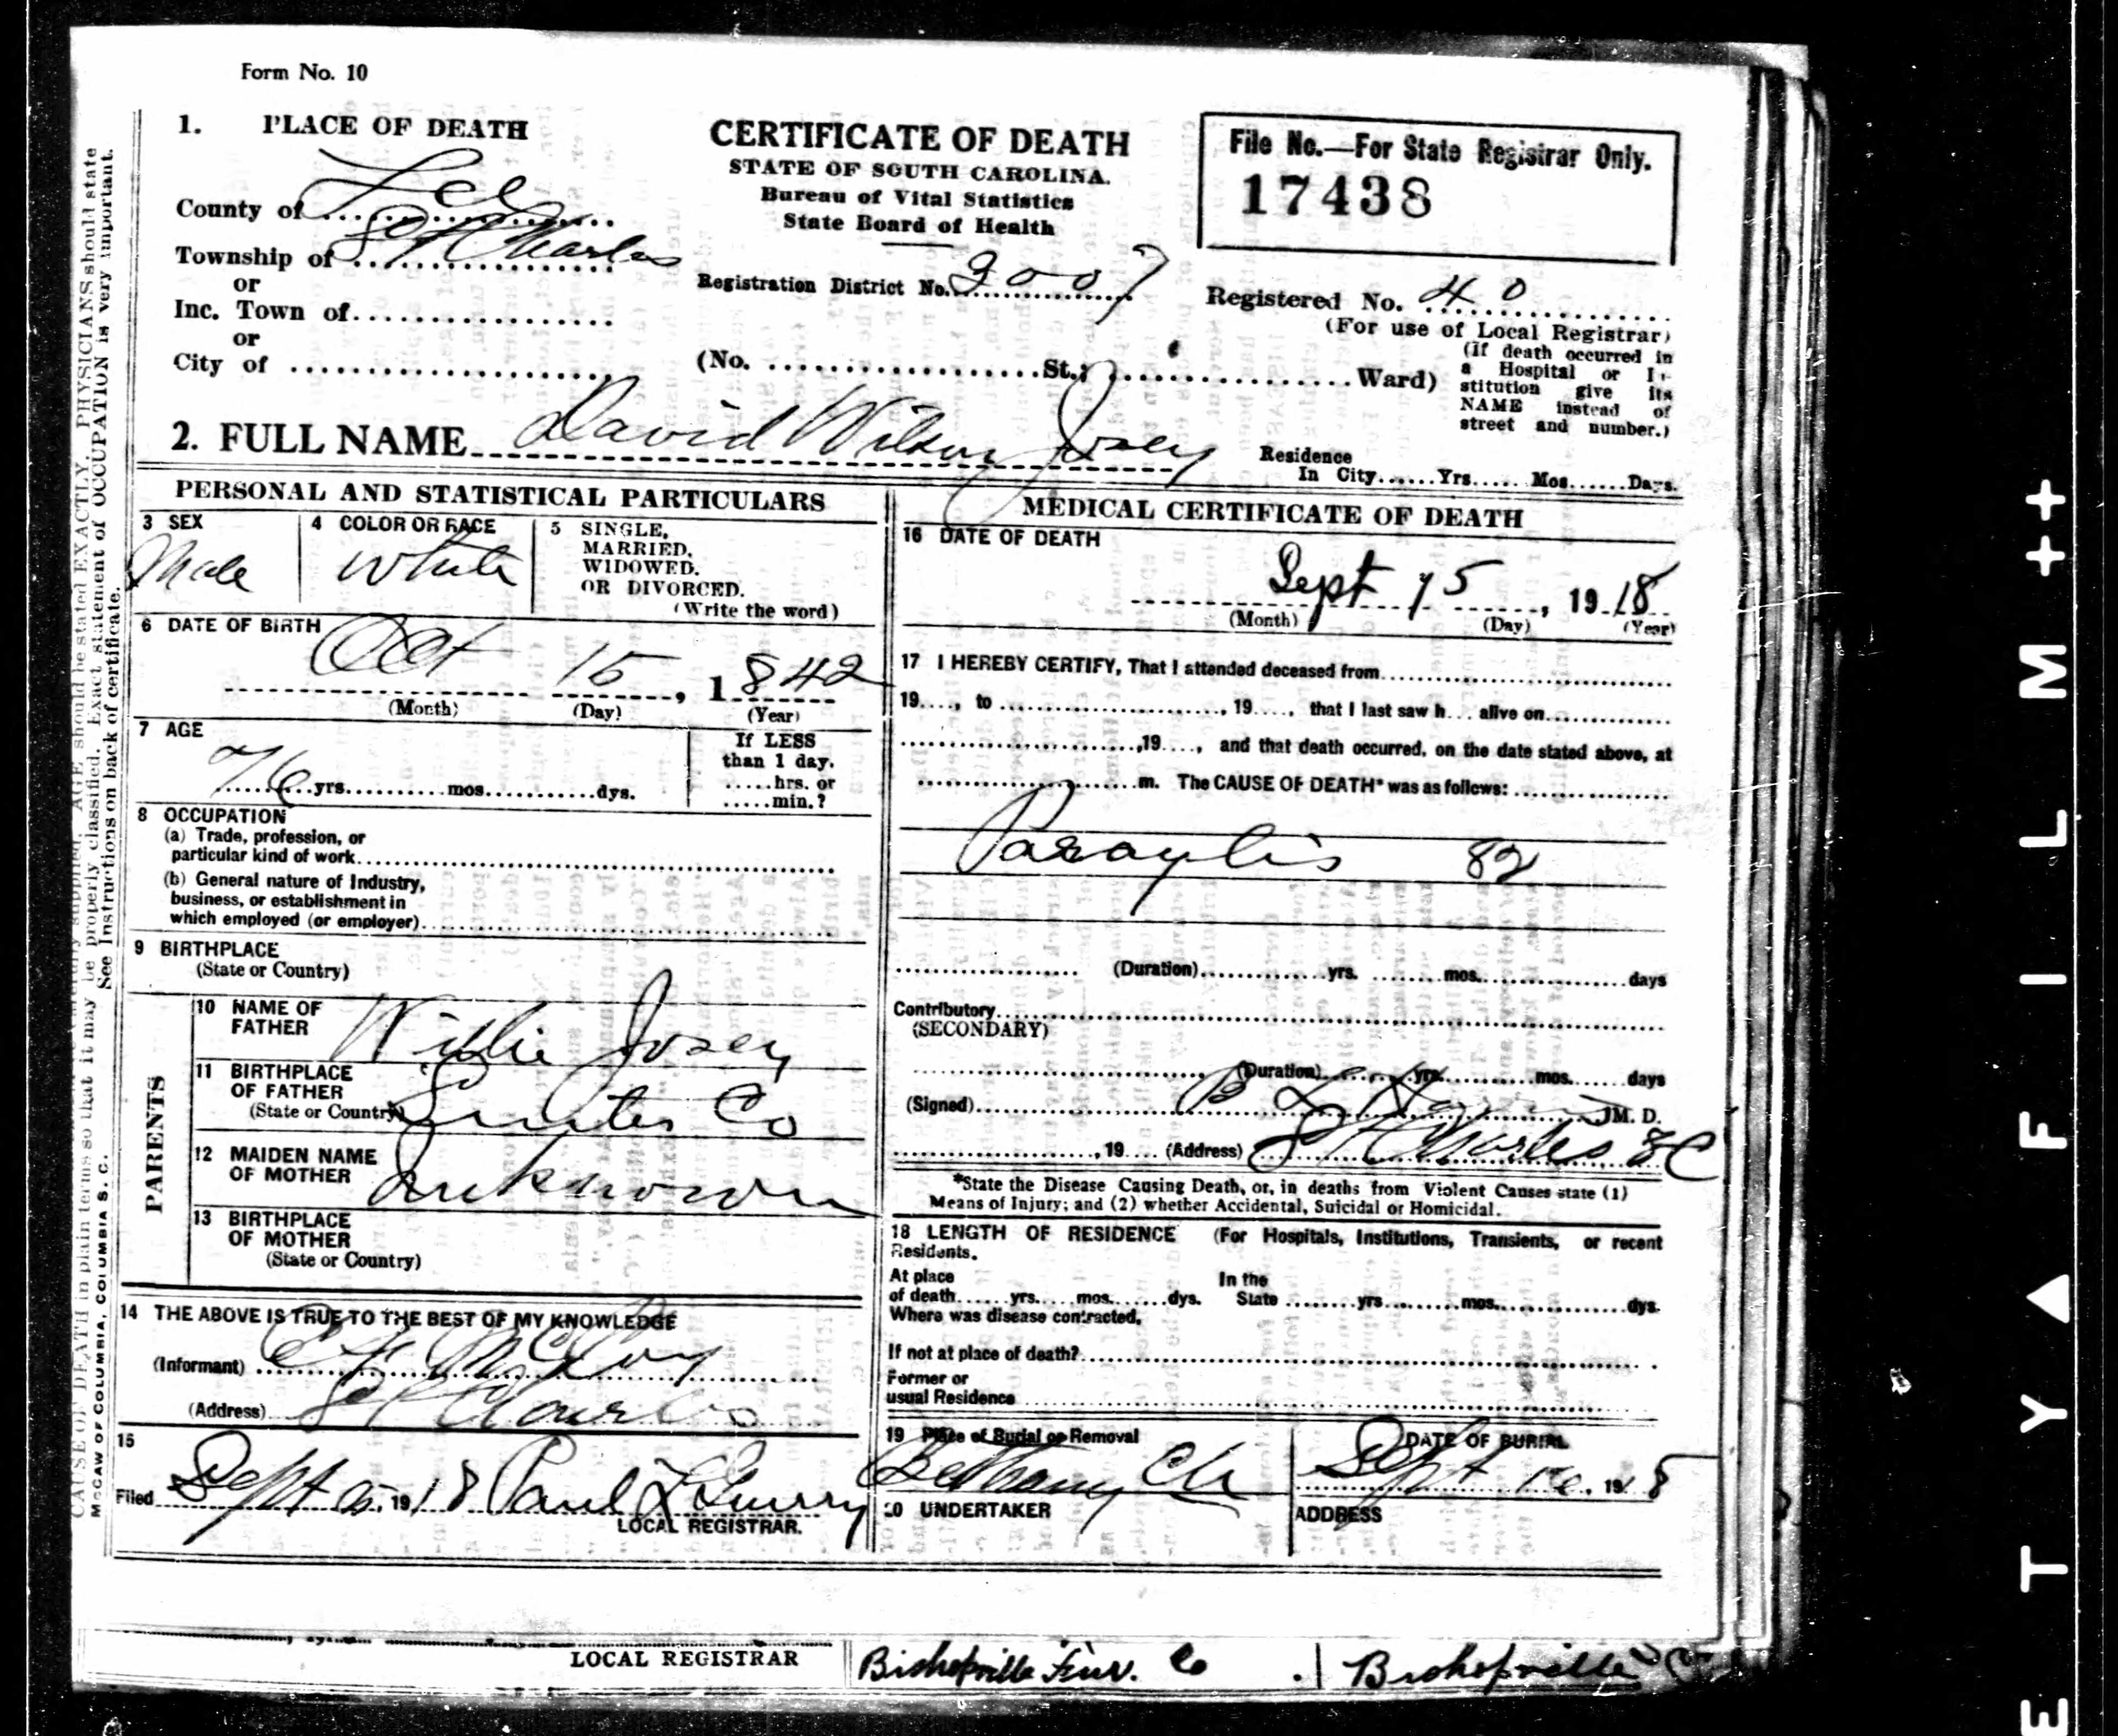 Form No. 10
1. PLACE OF DEATH
County of Lee
Township of St Charles
or
Inc. Town of
or
City of
CERTIFICATE OF DEATH
STATE OF SOUTH CAROLINA.
Bureau of Vital Statistics
State Board of Health
Registration District No. 3007
(No. St.; Ward)
File No.—For State Registrar Only.
17438
Registered No. 40
(For use of Local Registrar)
(If death occurred in
a Hospital or In-
stitution give its
NAME instead of
street and number.)
2. FULL NAME David Wilson Josey
Residence
In City Yrs. Mos. Days.
PERSONAL AND STATISTICAL PARTICULARS
3 SEX
Male
4 COLOR OR RACE
White
5 SINGLE,
MARRIED,
WIDOWED.
OR DIVORCED.
(Write the word)
6 DATE OF BIRTH
Oct 15, 1842
(Month) (Day) (Year)
7 AGE
76 yrs. mos. dys.
If LESS
than 1 day.
hrs. or
min.?
8 OCCUPATION
(a) Trade, profession, or
particular kind of work
(b) General nature of Industry,
business, or establishment in
which employed (or employer)
9 BIRTHPLACE
(State or Country)
PARENTS
10 NAME OF
FATHER
Willie Josey
11 BIRTHPLACE
OF FATHER
(State or Country)
Sumter Co
12 MAIDEN NAME
OF MOTHER
Unknown
13 BIRTHPLACE
OF MOTHER
(State or Country)
14 THE ABOVE IS TRUE TO THE BEST OF MY KNOWLEDGE
(Informant)
(Address) St Charles
15
Filed Sept 1918 Paul
LOCAL REGISTRAR.
MEDICAL CERTIFICATE OF DEATH
16 DATE OF DEATH
Sept 15, 1918
(Month) (Day) (Year)
17 I HEREBY CERTIFY, That I attended deceased from
19, to , 19, that I last saw h... alive on
,19, and that death occurred, on the date stated above, at
m. The CAUSE OF DEATH* was as follows:
Paraylis 82
(Duration) yrs. mos. days
Contributory
(SECONDARY)
(Duration) yrs. mos. days
(Signed) B L M. D.
, 19 (Address) St Charles SC
*State the Disease Causing Death, or, in deaths from Violent Causes state (1)
Means of Injury; and (2) whether Accidental, Suicidal or Homicidal.
18 LENGTH OF RESIDENCE (For Hospitals, Institutions, Transients, or recent
Residents.
At place
of death yrs. mos. dys.
In the
State yrs. mos. dys.
Where was disease contracted,
If not at place of death?
Former or
usual Residence
19 Place of Burial or Removal
Bethany Ch
DATE OF BURIAL
Sept 16, 1918
20 UNDERTAKER
ADDRESS
LOCAL REGISTRAR
Bishopville Fur. Co
Bishopville
AGE should be stated EXACTLY. PHYSICIANS should state
CAUSE OF DEATH in plain terms so that it may be properly classified. Exact statement of OCCUPATION is very important.
See Instructions on back of certificate.
McCAW OF COLUMBIA, COLUMBIA S. C.
ETY▲FILM++